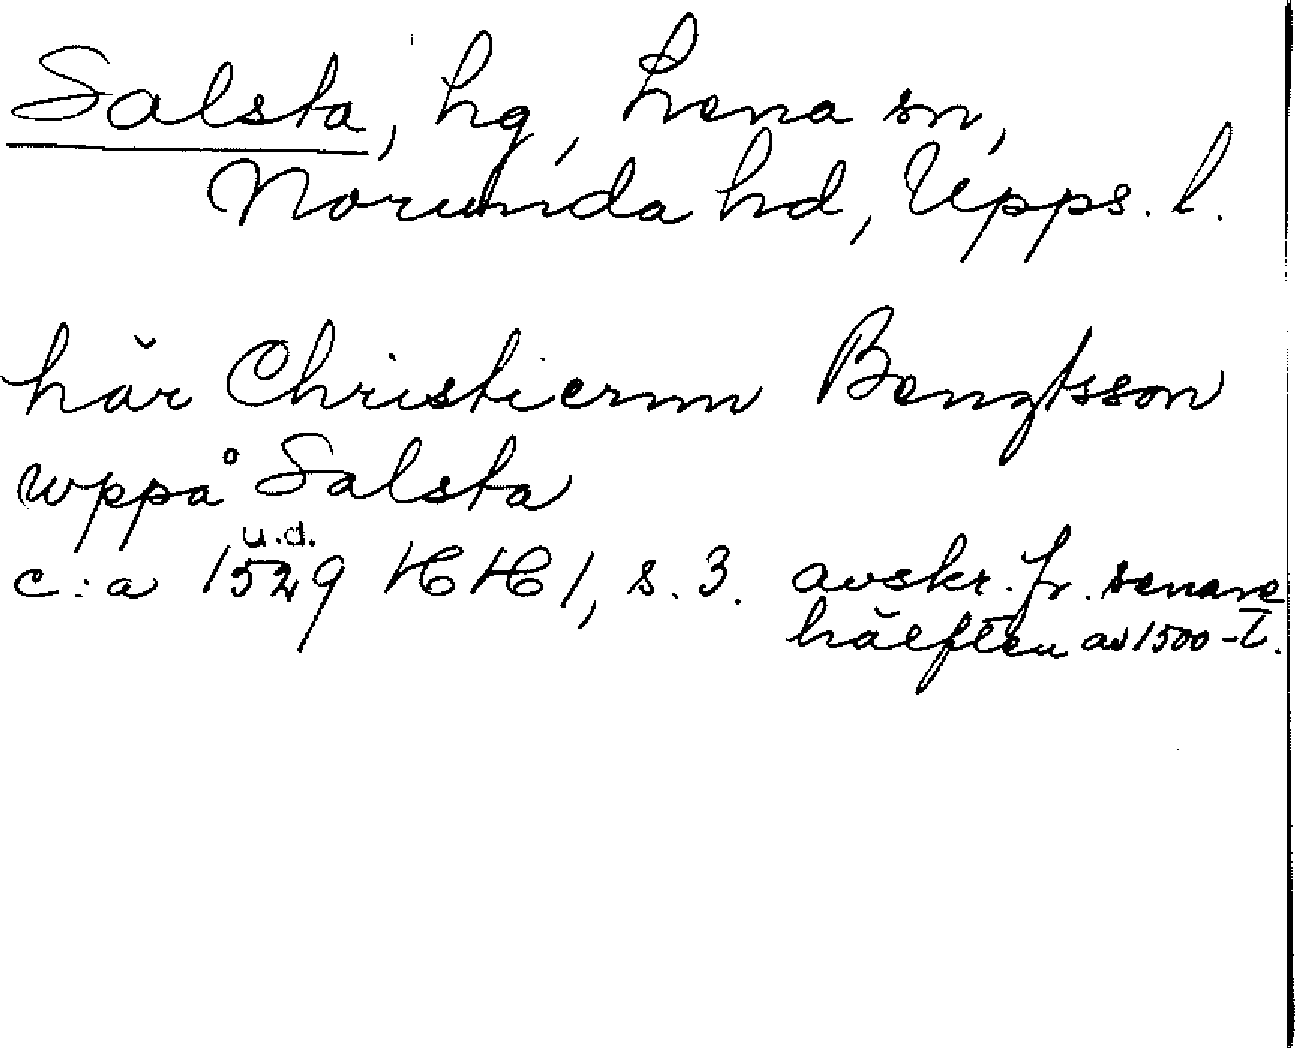 Salsta, hg, Lena sn,
Norunda hd, Upps. l.
här Christiernn Bengtsson
wppå Salsta
u.d.
c:a 1529 HH 1, s. 3. avskr. fr. senare
hälften av 1500-t.